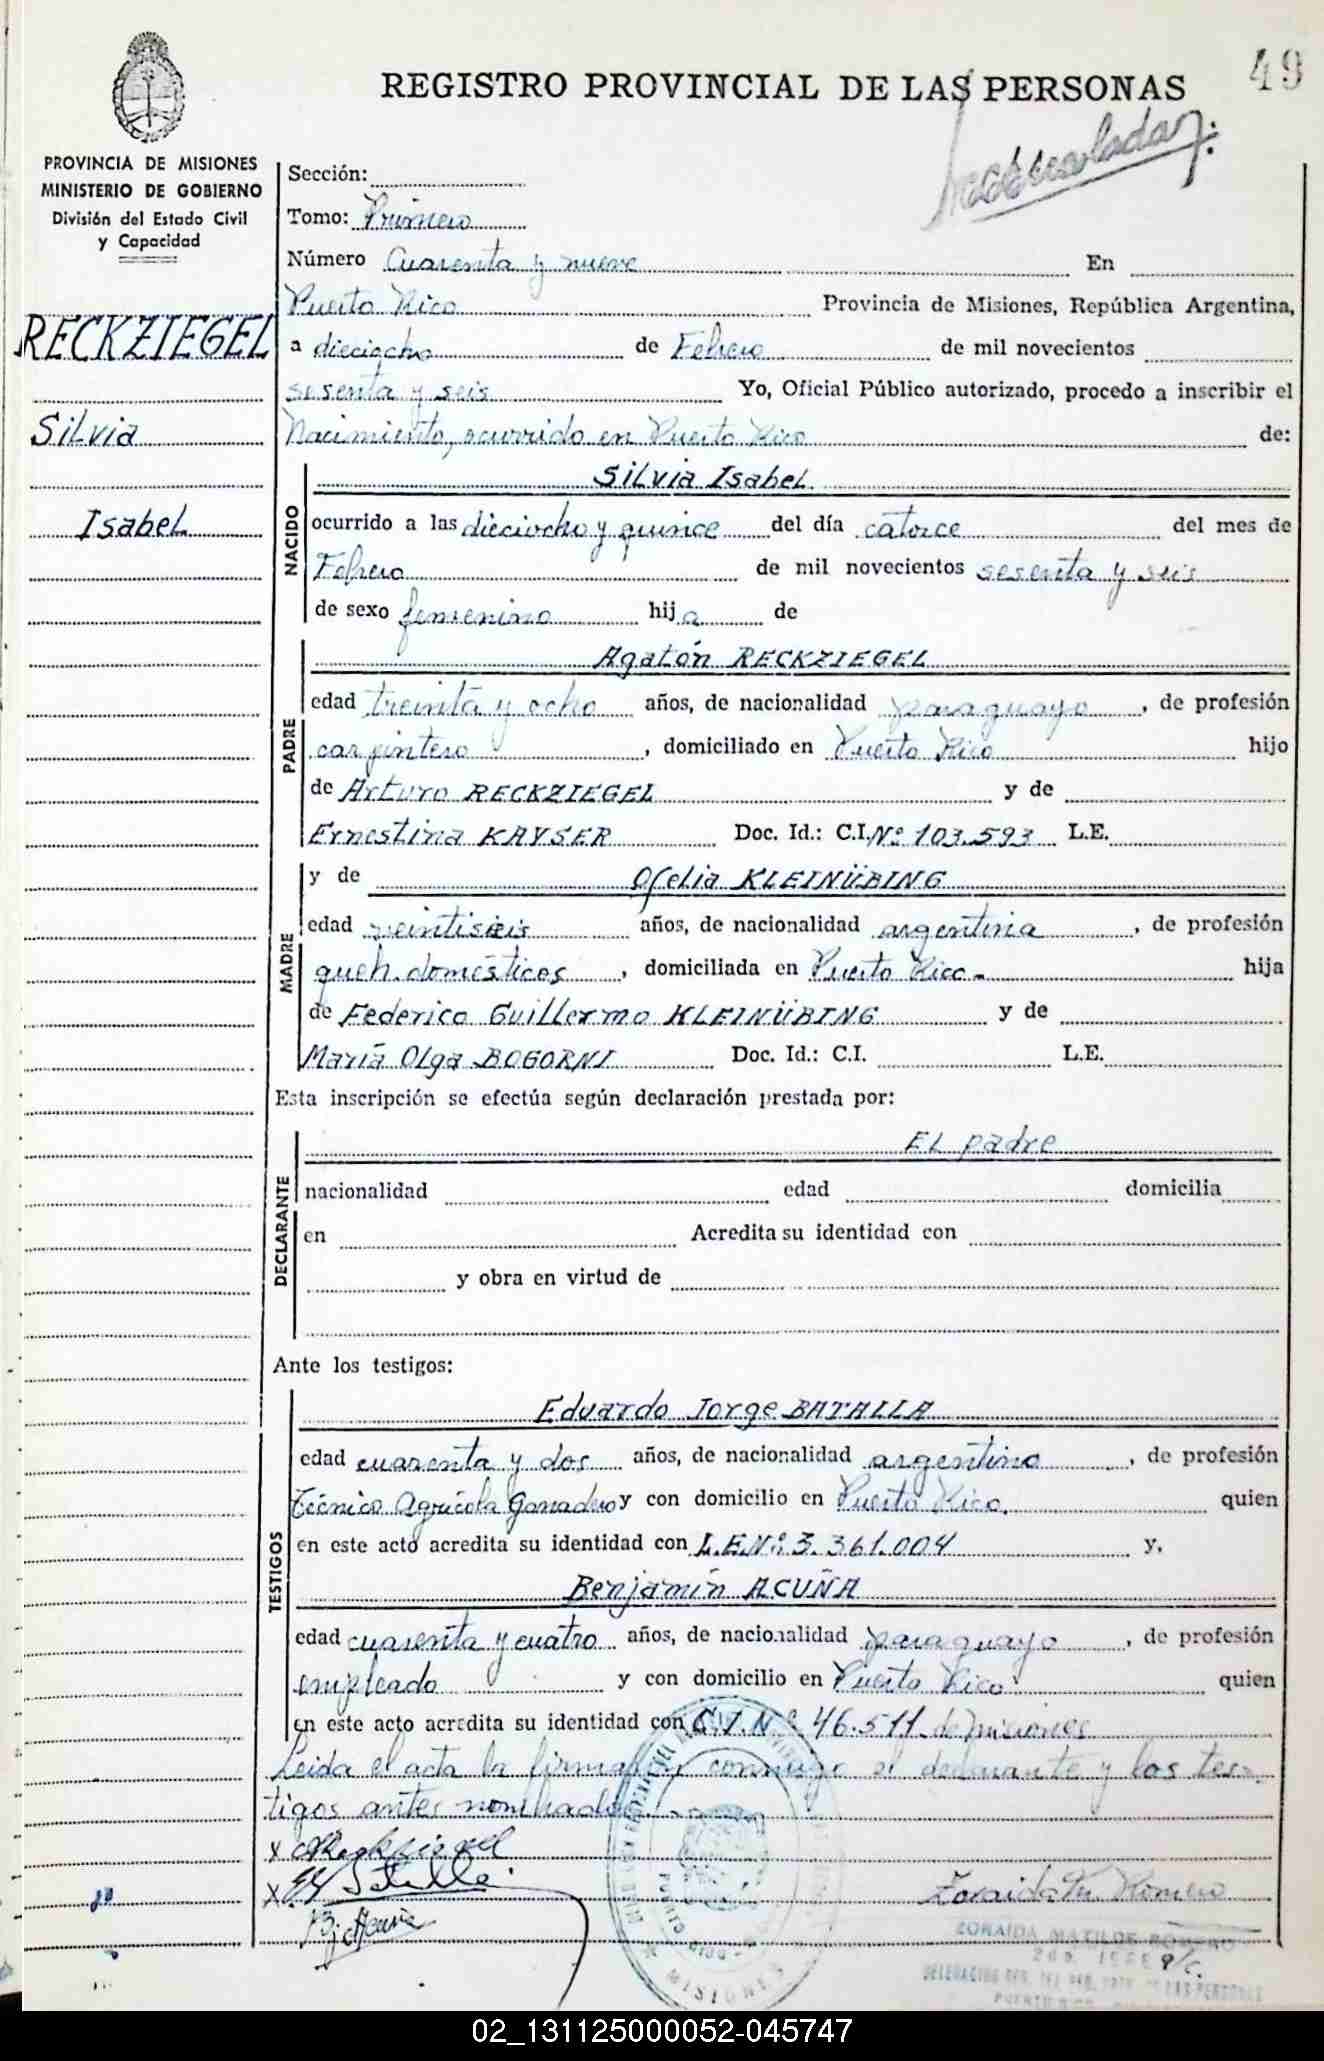 49
REGISTRO PROVINCIAL DE LAS PERSONAS
PROVINCIA DE MISIONES
MINISTERIO DE GOBIERNO
División del Estado Civil
y Capacidad
RECKZIEGEL
Silvia
Isabel
Sección:
Tomo: Primero
Número Cuarenta y nueve En
Puerto Rico Provincia de Misiones, República Argentina,
a dieciocho de Febrero de mil novecientos
sesenta y seis Yo, Oficial Público autorizado, procedo a inscribir el
Nacimiento, ocurrido en Puerto Rico de:
NACIDO
Silvia Isabel
ocurrido a las dieciocho y quince del día catorce del mes de
Febrero de mil novecientos sesenta y seis
de sexo femenino hija de
PADRE
Agatón RECKZIEGEL
edad treinta y ocho años, de nacionalidad paraguayo, de profesión
carpintero, domiciliado en Puerto Rico hijo
de Arturo RECKZIEGEL y de
Ernestina KAYSER Doc. Id.: C.I. Nº 103.593 L.E.
MADRE
y de Ofelia KLEINÜBING
edad veintiseis años, de nacionalidad argentina, de profesión
queh. domésticos, domiciliada en Puerto Rico.- hija
de Federico Guillermo KLEINÜBING y de
María Olga BOGORNI Doc. Id.: C.I. L.E.
Esta inscripción se efectúa según declaración prestada por:
DECLARANTE
El padre
nacionalidad edad domicilia
en Acredita su identidad con
y obra en virtud de
Ante los testigos:
TESTIGOS
Eduardo Jorge BATALLA
edad cuarenta y dos años, de nacionalidad argentino, de profesión
Técnico Agrícola Ganadero y con domicilio en Puerto Rico. quien
en este acto acredita su identidad con L.E.Nº: 3.361.004 y,
Benjamín ACUÑA
edad cuarenta y cuatro años, de nacionalidad paraguayo, de profesión
empleado y con domicilio en Puerto Rico quien
en este acto acredita su identidad con C.I.Nº 46.511 de Misiones
Leida el acta la firman conmigo el declarante y los tes-
tigos antes nombrados
x Reckziegel
x Batalla
Bj Acuña
Zoraida M. Romero
ZORAIDA MATILDE ROMERO
MISIONES
02_131125000052-045747